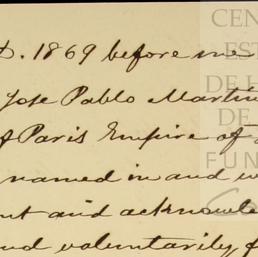 D. 1869 before me
Jose Pablo Martin
of Paris Empire of
named in and w
nt and acknowle
nd voluntarily f
CEN
EST
DE H
DE
FUN